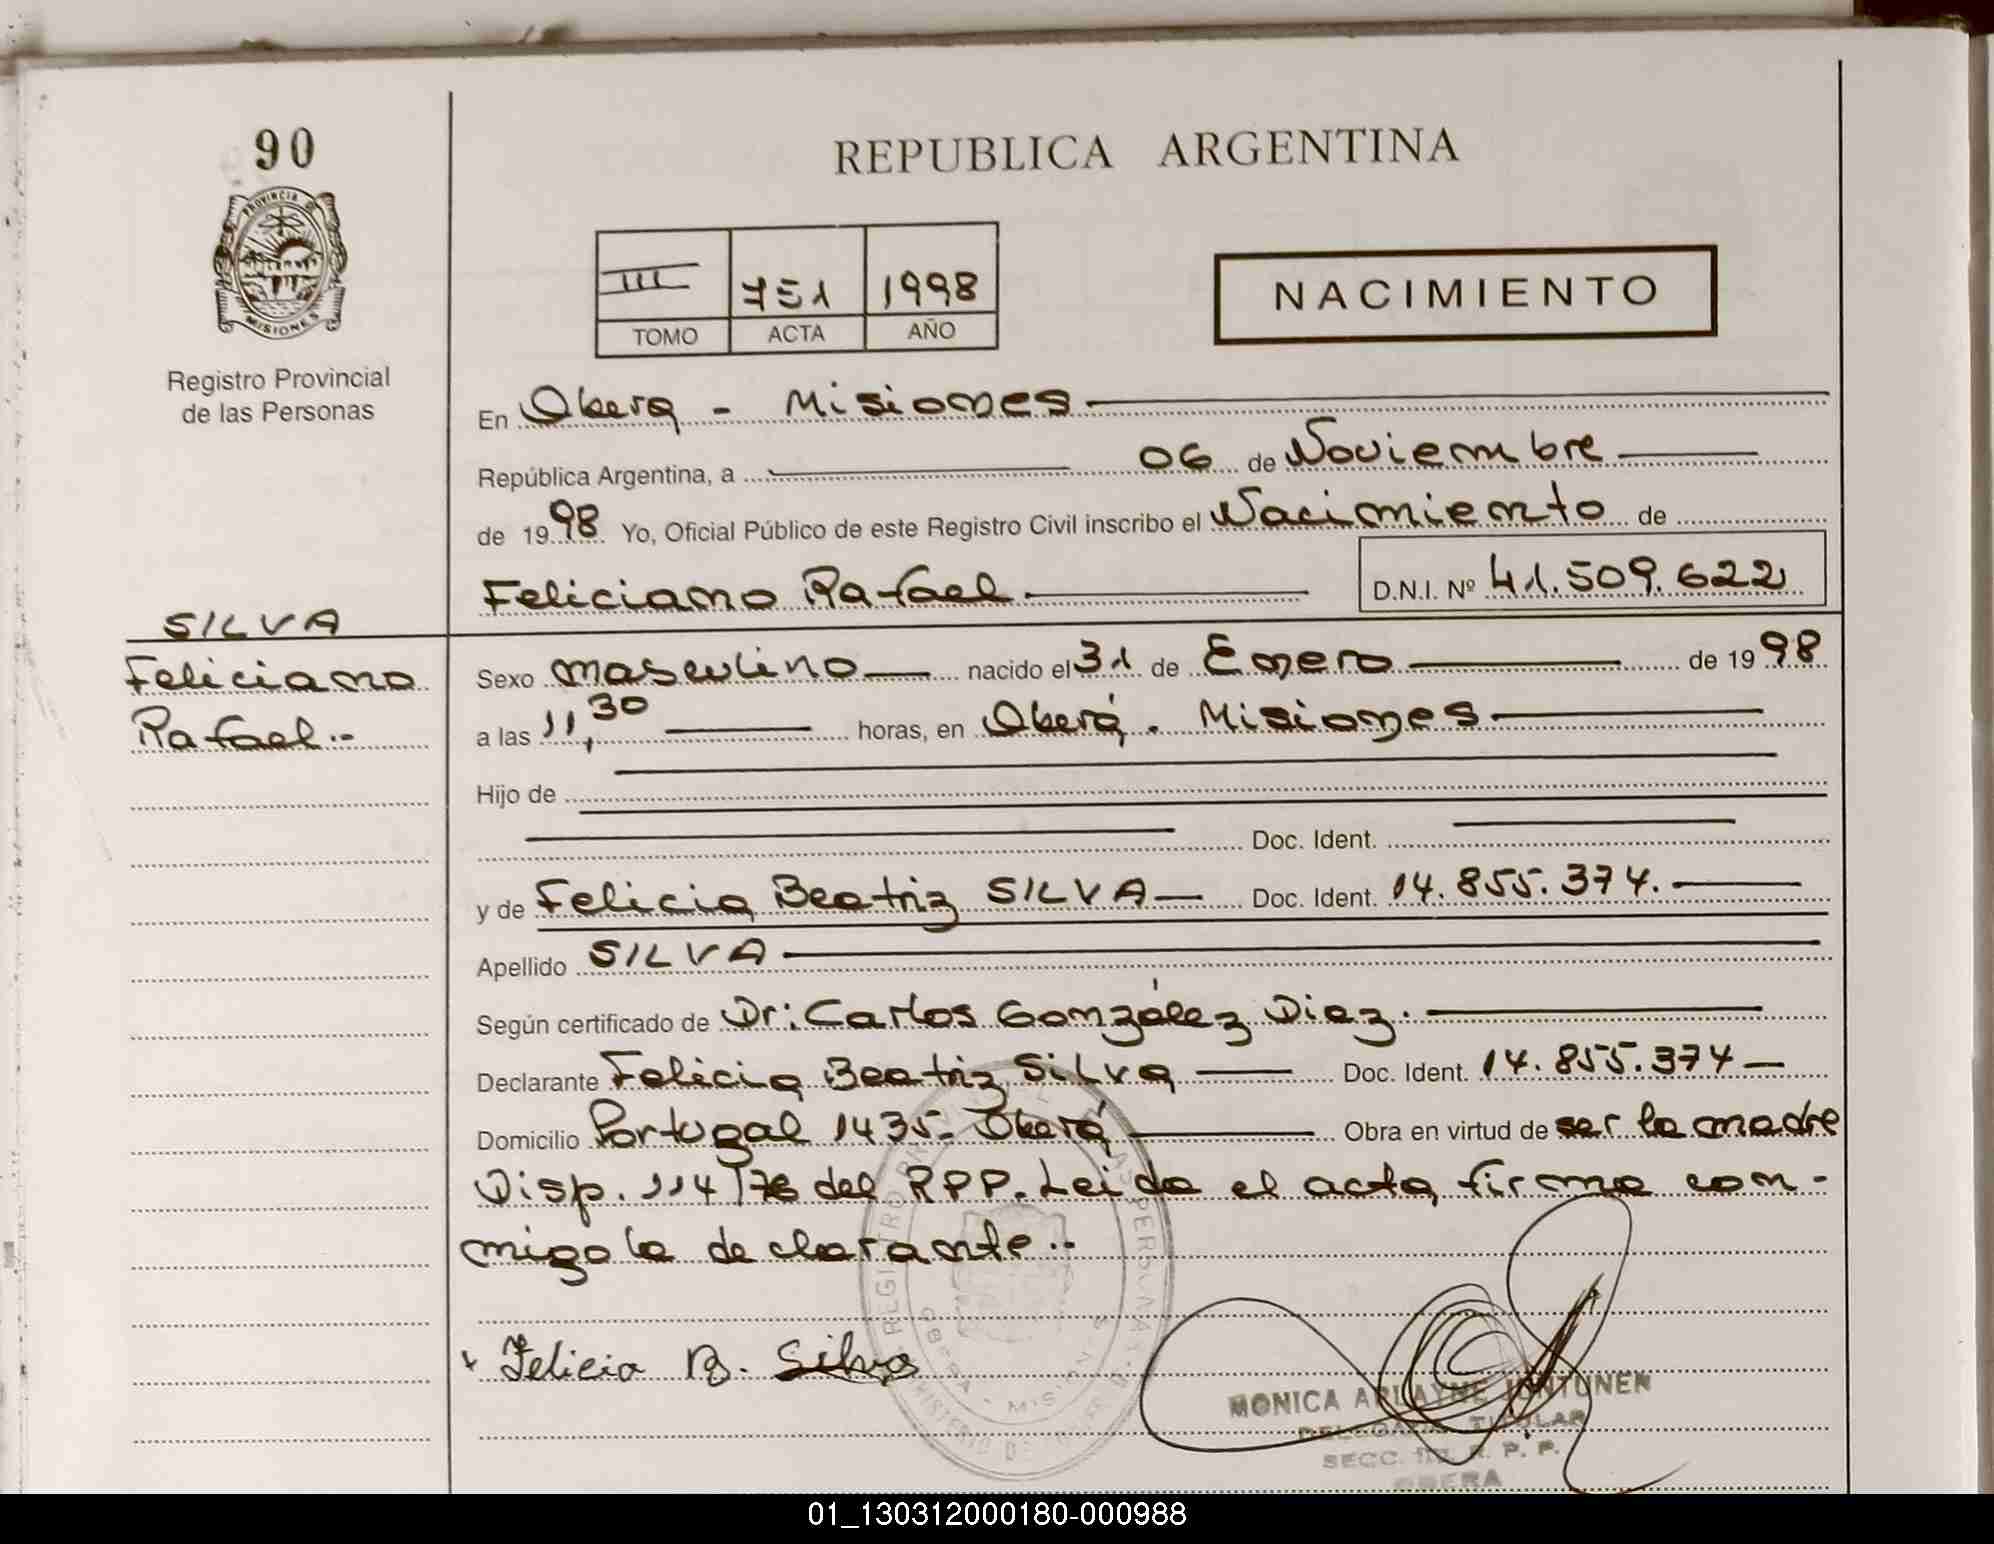 90
REPUBLICA ARGENTINA
PROVINCIA DE
MISIONES
III 751 1998
TOMO ACTA AÑO
NACIMIENTO
Registro Provincial
de las Personas
En Obera - Misiones
República Argentina, a 06 de Noviembre
de 1998 Yo, Oficial Público de este Registro Civil inscribo el Nacimiento de
Feliciano Rafael D.N.I. Nº 41.509.622
SILVA
Feliciano
Rafael.-
Sexo masculino nacido el 31 de Enero de 1998
a las 11,30 horas, en Oberá. Misiones
Hijo de
Doc. Ident.
y de Felicia Beatriz SILVA Doc. Ident. 14.855.374.
Apellido SILVA
Según certificado de Dr: Carlos González Diez.
Declarante Felicia Beatriz Silva Doc. Ident. 14.855.374
Domicilio Portugal 1435- Oberá Obra en virtud de ser la madre
Disp. 114/76 del RPP. Leida el acta, firma con-
migo la declarante.-
Felicia B. Silva
MONICA
DELEGADA TITULAR
SECC. R. P. P.
OBERA
01_130312000180-000988